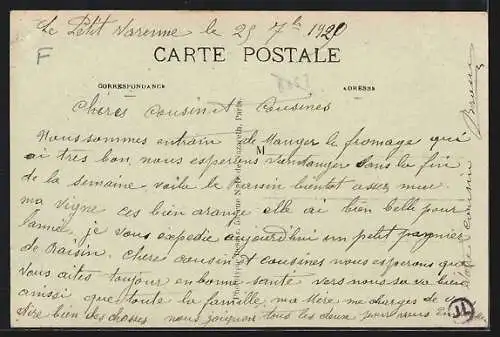 Le Petit Varenne le 25 7bre 1920
F
CARTE POSTALE
CORRESPONDANCE
ADRESSE
Chères Cousin et Cousines
Nous sommes entrain de Manger le fromage qui
ai tres bon nous esperons Vandanger dans la fin
M
de la semaine voila le raisin bientot assez mur
ma vigne ces bien arange elle ai bien belle pour
lannee je vous expedie aujourdhui un petit pagnier
de Raisin. Cheres cousin et cousines nous esperons que
Vous aites toujour en bonne santé vers nous sa va bien
ainsi que toute la famille, ma Mère me charges de v
dire bien des choses nous joignons tous les deux pour vous
votre cousin
TC